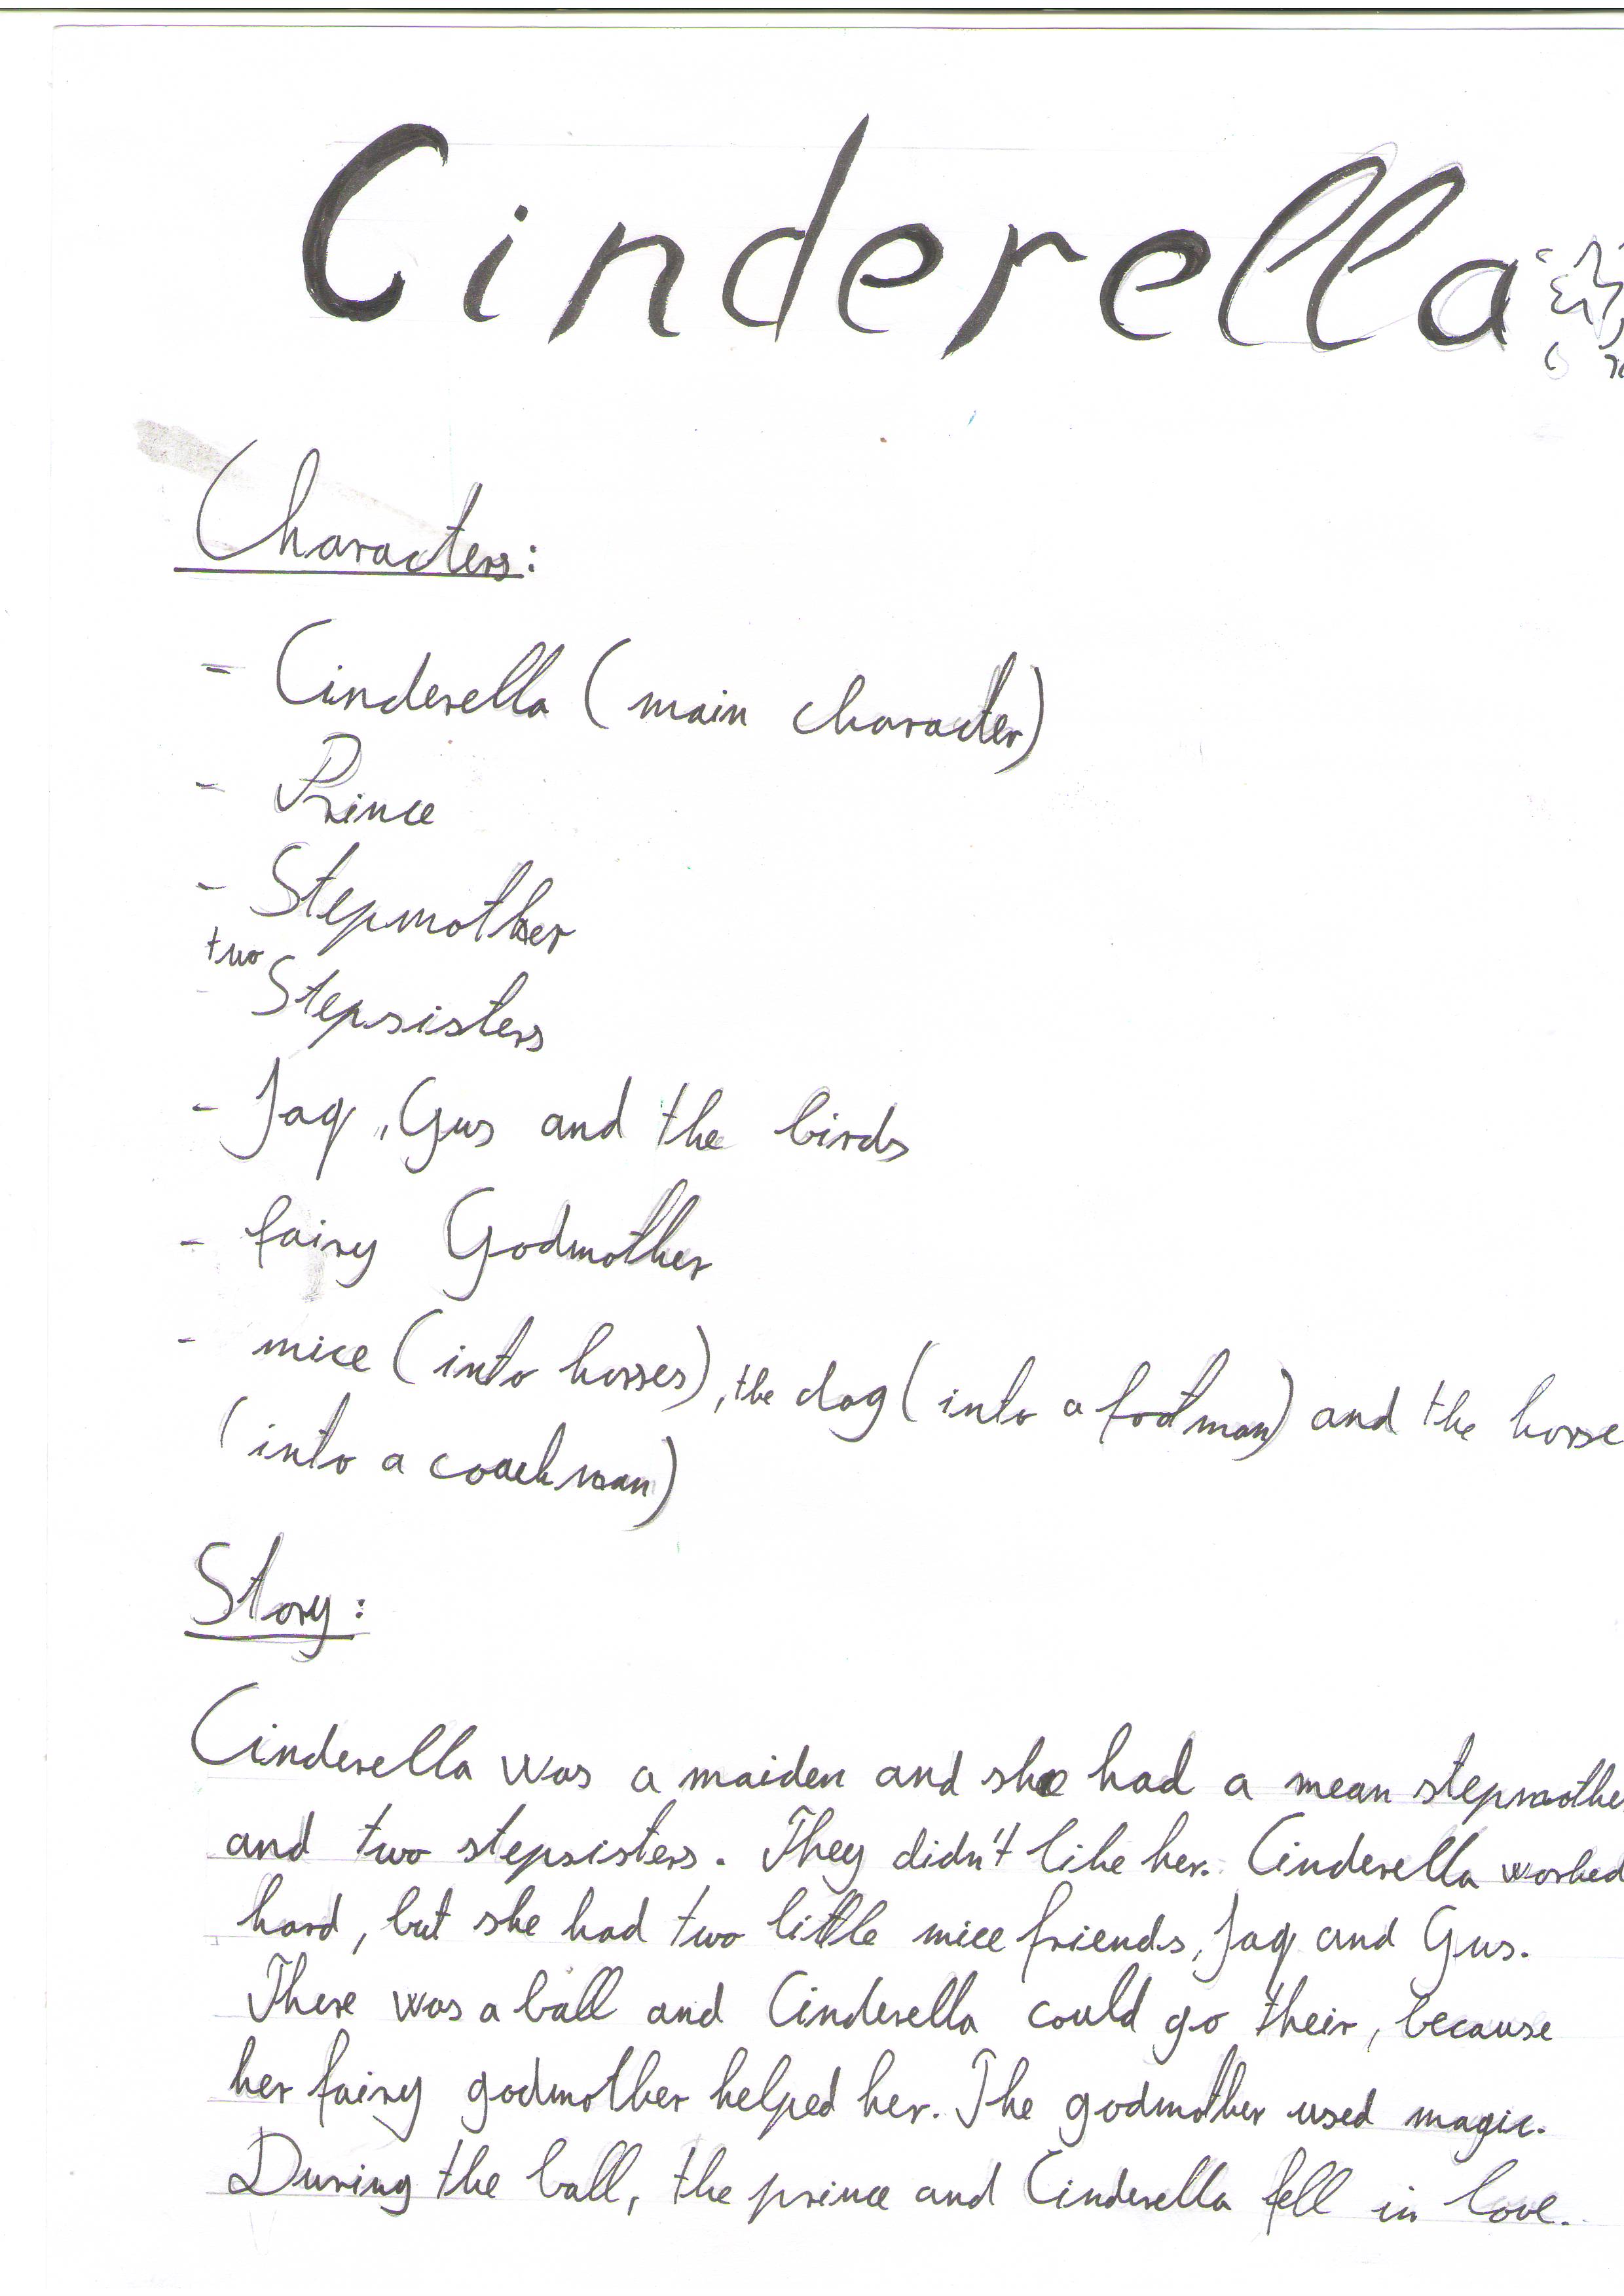 Cinderella
Characters:
- Cinderella (main character)
- Prince
- Stepmother
two
- Stepsisters
- Jaq, Gus and the birds
- fairy Godmother
- mice (into horses), the dog (into a footman) and the horse
(into a coachman)
Story:
Cinderella was a maiden and she had a mean stepmothe
and two stepsisters. They didn't like her. Cinderella worked
hard, but she had two little mice friends, Jaq and Gus.
There was a ball and Cinderella could go their, because
her fairy godmother helped her. The godmother used magic.
During the ball, the prince and Cinderella fell in love.